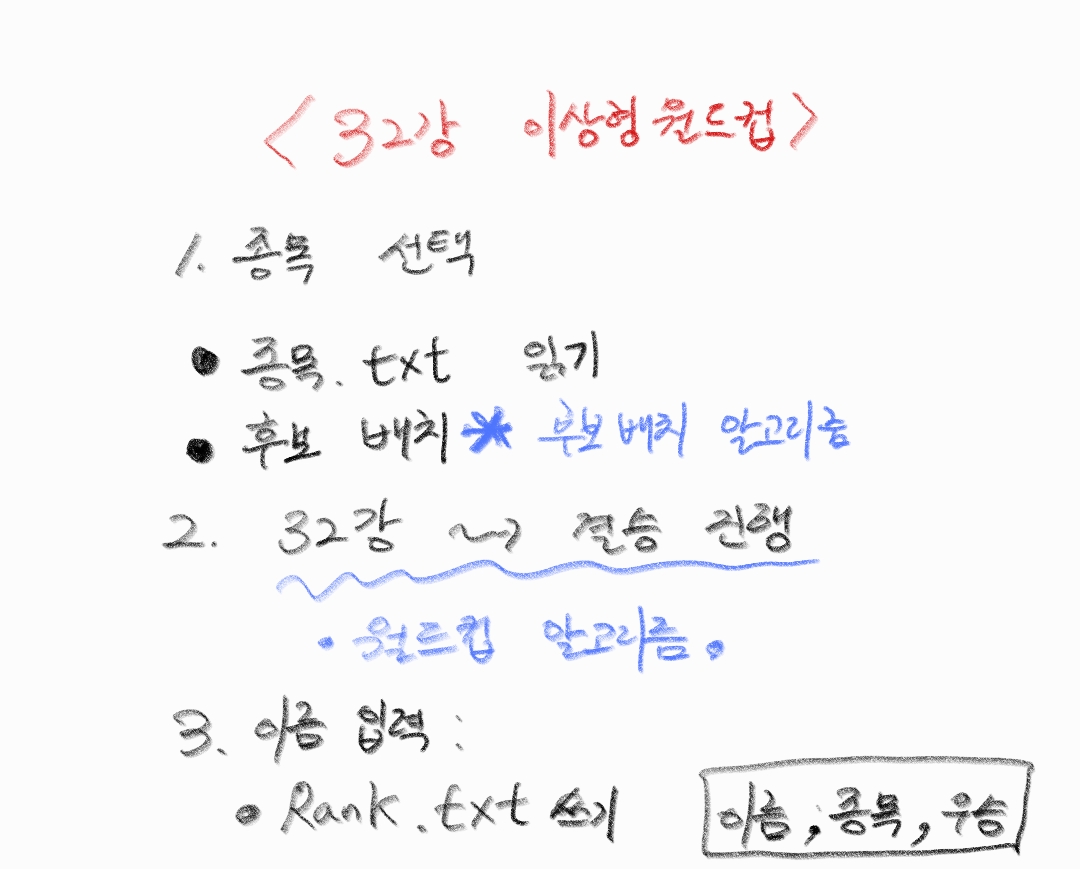 <32강 이상형 월드컵>
1. 종목 선택
• 종목.txt 읽기
• 후보 배치 * 후보 배치 알고리즘
2. 32강 ~> 결승 진행
• 월드컵 알고리즘.
3. 이름 입력 :
• Rank.txt 쓰기
이름, 종목, 우승